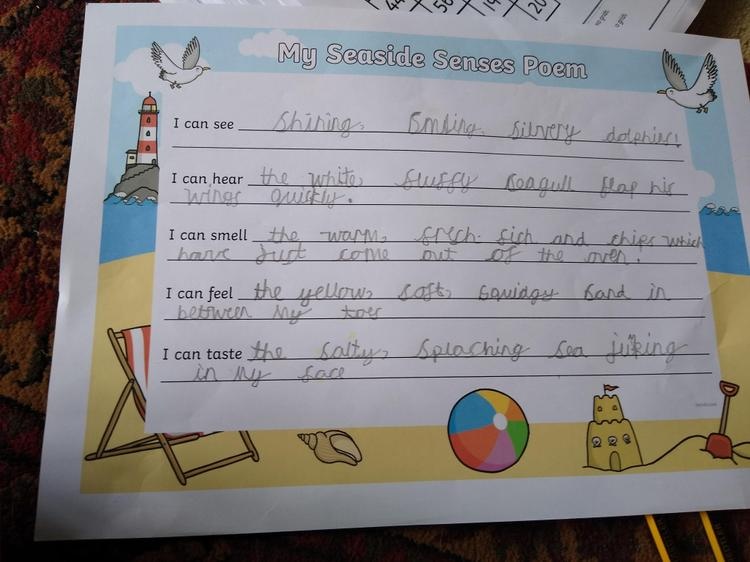 44 56 19 20
My Seaside Senses Poem
I can see Shining, Smiling, silvery dolphins!
I can hear the white, fluffy seagull flap his
wings quickly.
I can smell the warm, fresh fish and chips which
have just come out of the oven!
I can feel the yellow, soft, squidgy sand in
between my toes
I can taste the salty, splashing sea
in my face